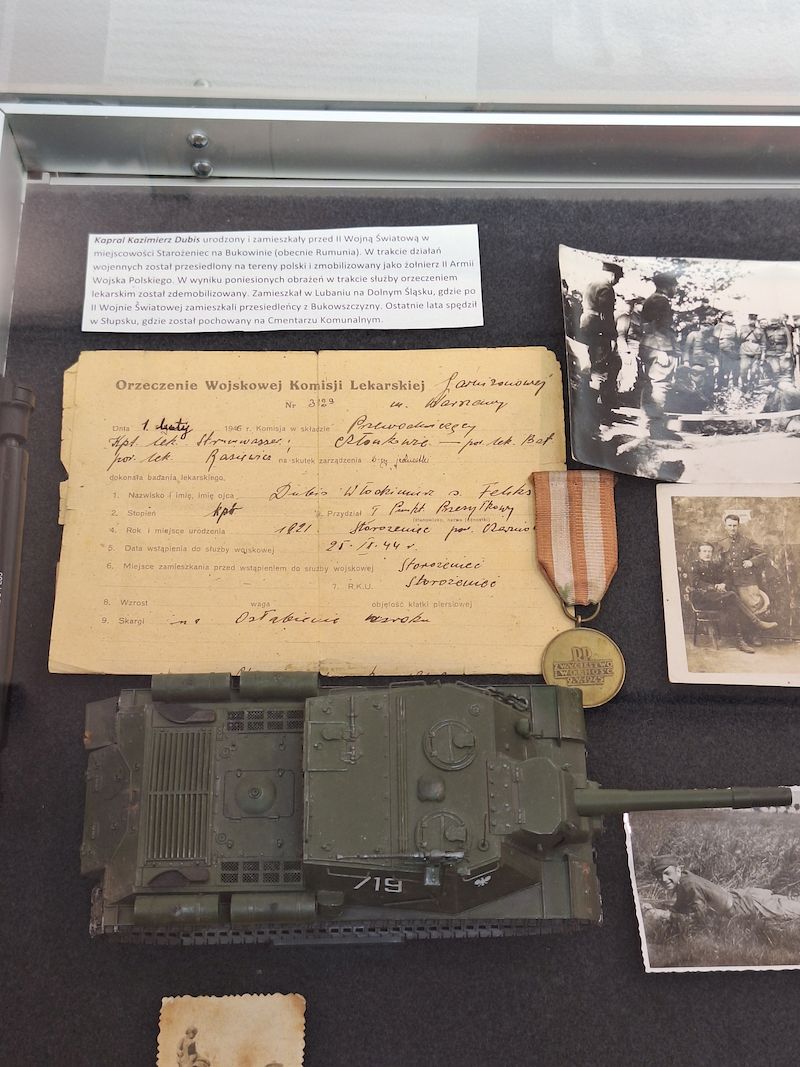 Kapral Kazimierz Dubis urodzony i zamieszkały przed II Wojną Światową w
miejscowości Starożeniec na Bukowinie (obecnie Rumunia). W trakcie działań
wojennych został przesiedlony na tereny polski i zmobilizowany jako żołnierz II Armii
Wojska Polskiego. W wyniku poniesionych obrażeń w trakcie służby orzeczeniem
lekarskim został zdemobilizowany. Zamieszkał w Lubaniu na Dolnym Śląsku, gdzie po
II Wojnie Światowej zamieszkali przesiedleńcy z Bukowszczyzny. Ostatnie lata spędził
w Słupsku, gdzie został pochowany na Cmentarzu Komunalnym.
Orzeczenie Wojskowej Komisji Lekarskiej Garnizonowej
Nr 3129 m. Warszawy
Dnia 1 luty 1946 r. Komisja w składzie Przewodniczący
Kpt. lek. Członkowie — por. lek.
por. lek. na skutek zarządzenia jednostki
dokonała badania lekarskiego.
1. Nazwisko i imię, imię ojca Dubis Włodzimierz s. Feliksa
2. Stopień kpr 3. Przydział Punkt Przesyłkowy
(stanowisko, nazwa jednostki)
4. Rok i miejsce urodzenia 1921 Storożeniec pow.
5. Data wstąpienia do służby wojskowej 44 r.
6. Miejsce zamieszkania przed wstąpieniem do służby wojskowej Storożeniec
7. R.K.U. Storożeniec
8. Wzrost waga objętość klatki piersiowej
9. Skargi na Osłabienie wzroku
RP
ZWYCIĘSTWO
I WOLNOŚĆ
9.V.1945
719